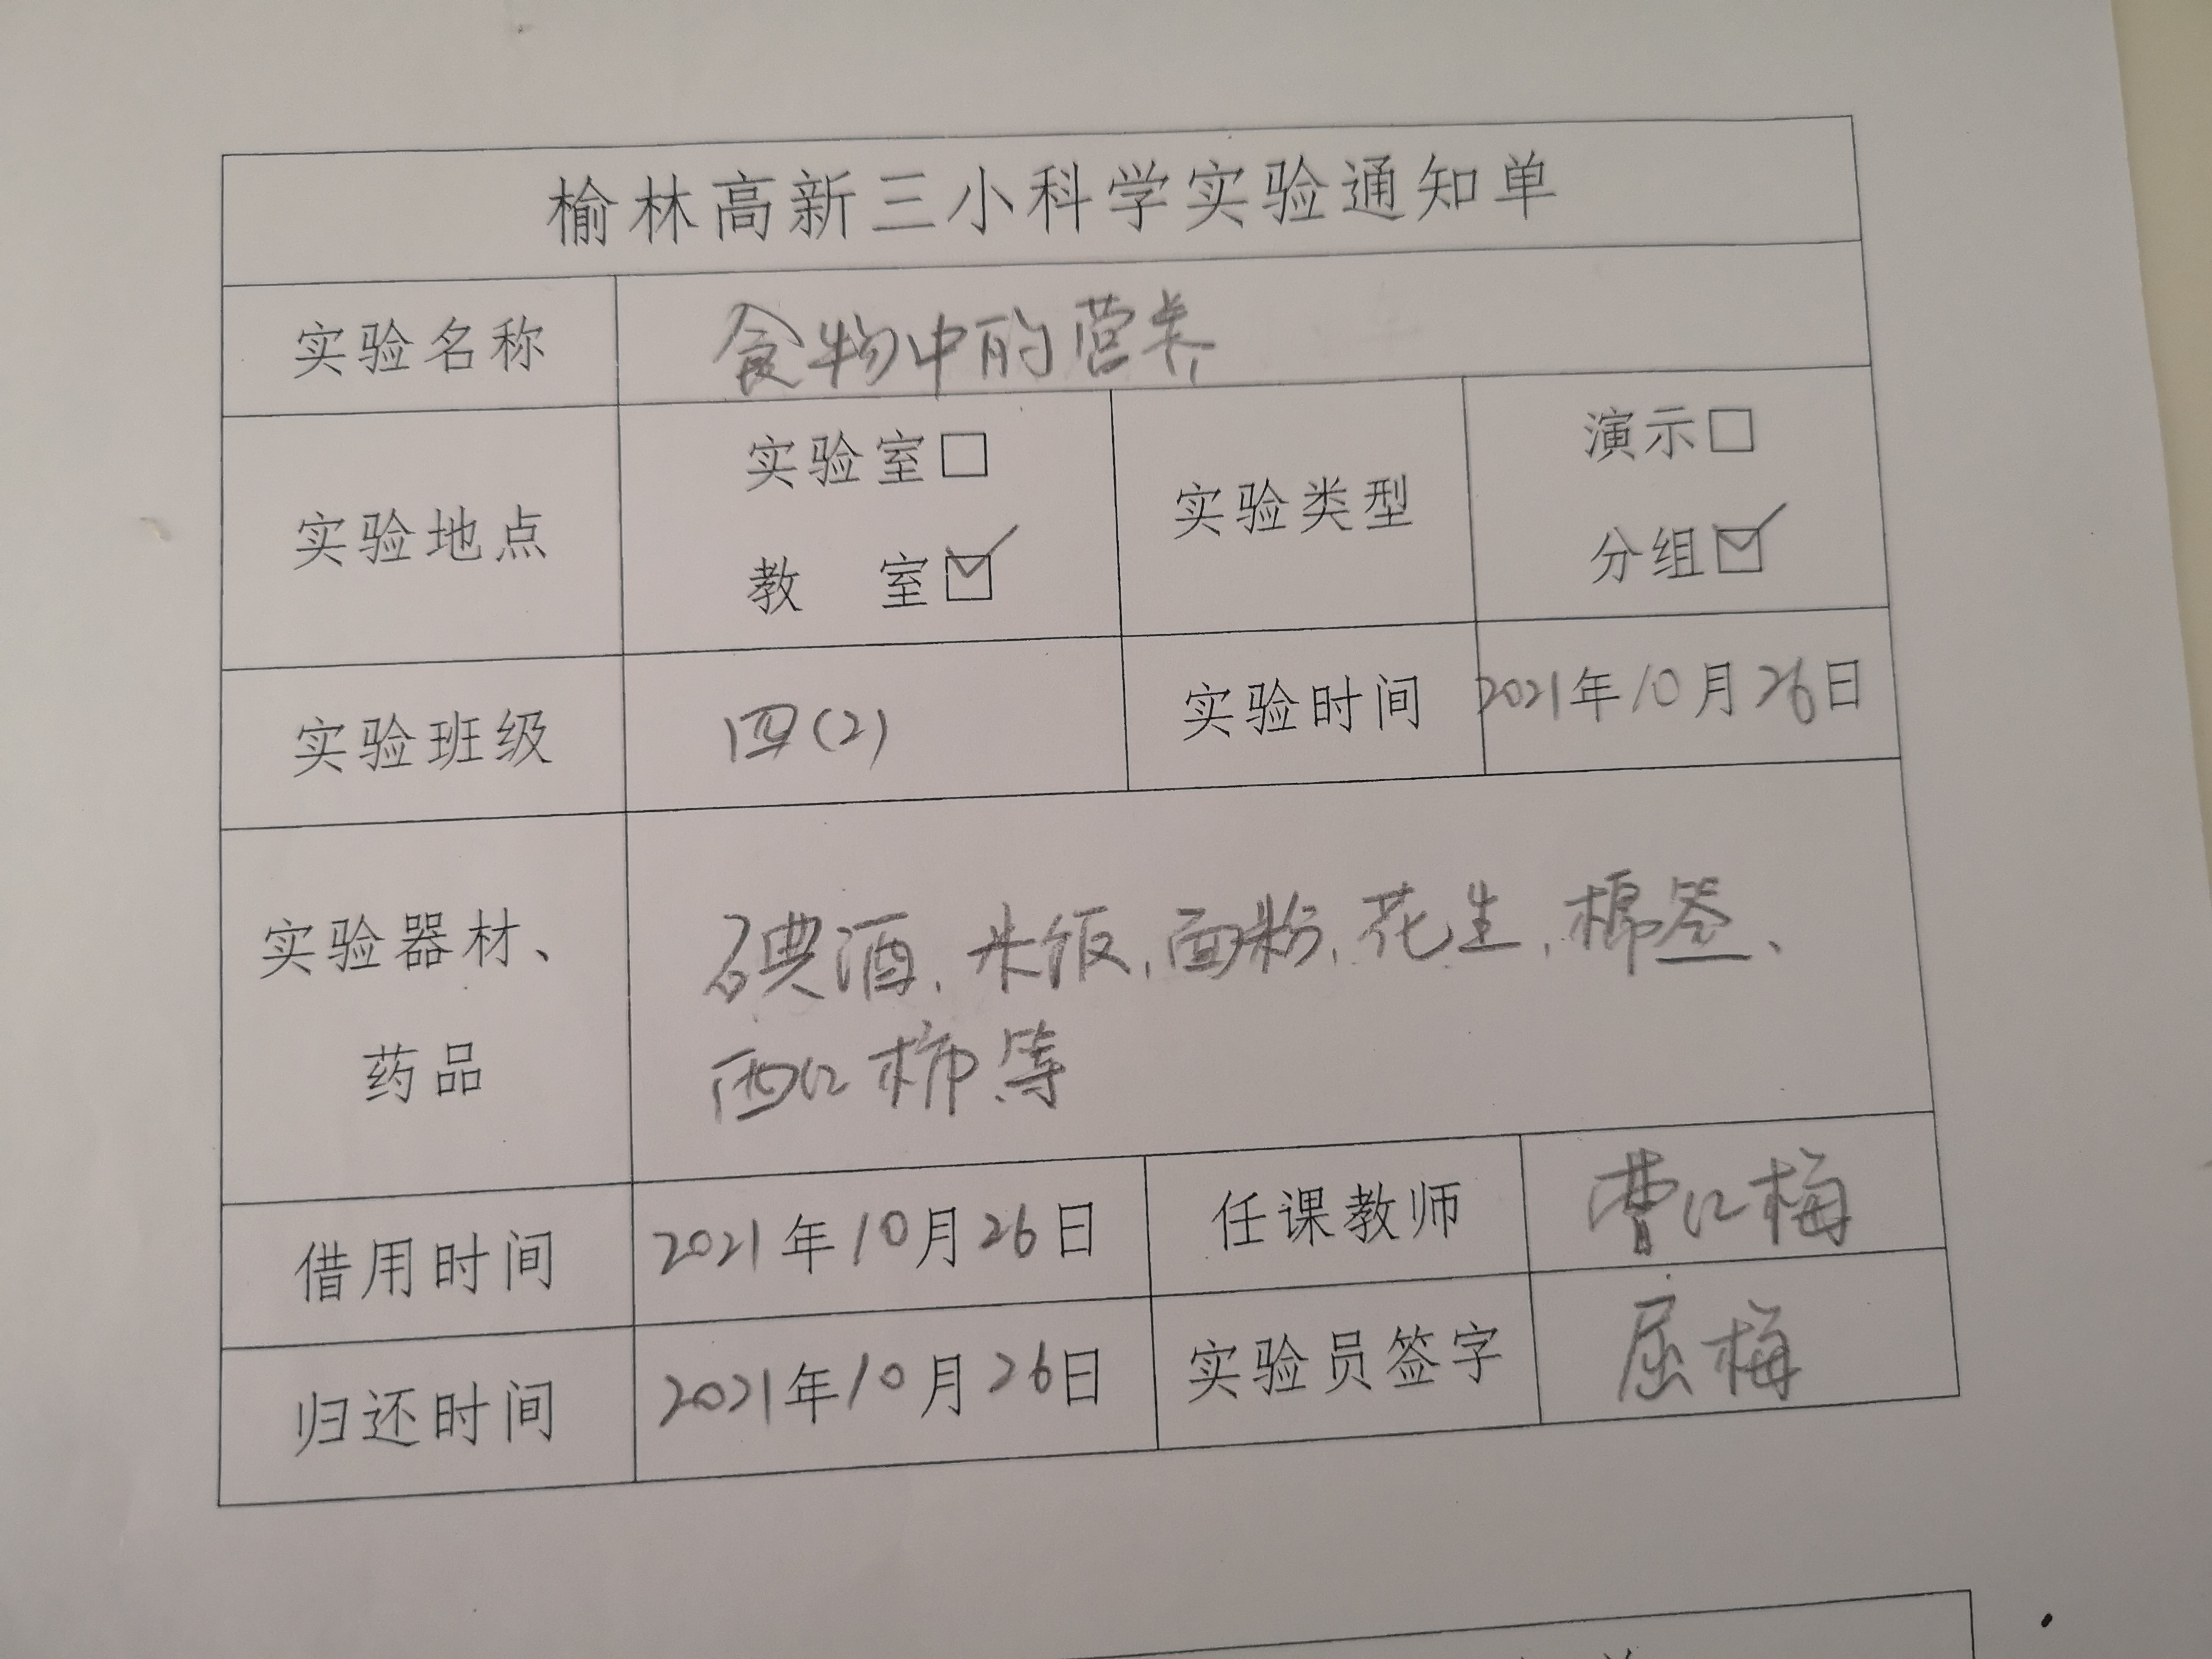 榆林高新三小科学实验通知单
实验名称 食物中的营养
实验室□ 演示□
实验地点 实验类型
教 室☑ 分组☑
实验班级 四(2) 实验时间 2021年10月26日
实验器材、 碘酒、米饭、面粉、花生、棉签、
药品 西红柿等
借用时间 2021年10月26日 任课教师 曹红梅
归还时间 2021年10月26日 实验员签字 屈梅